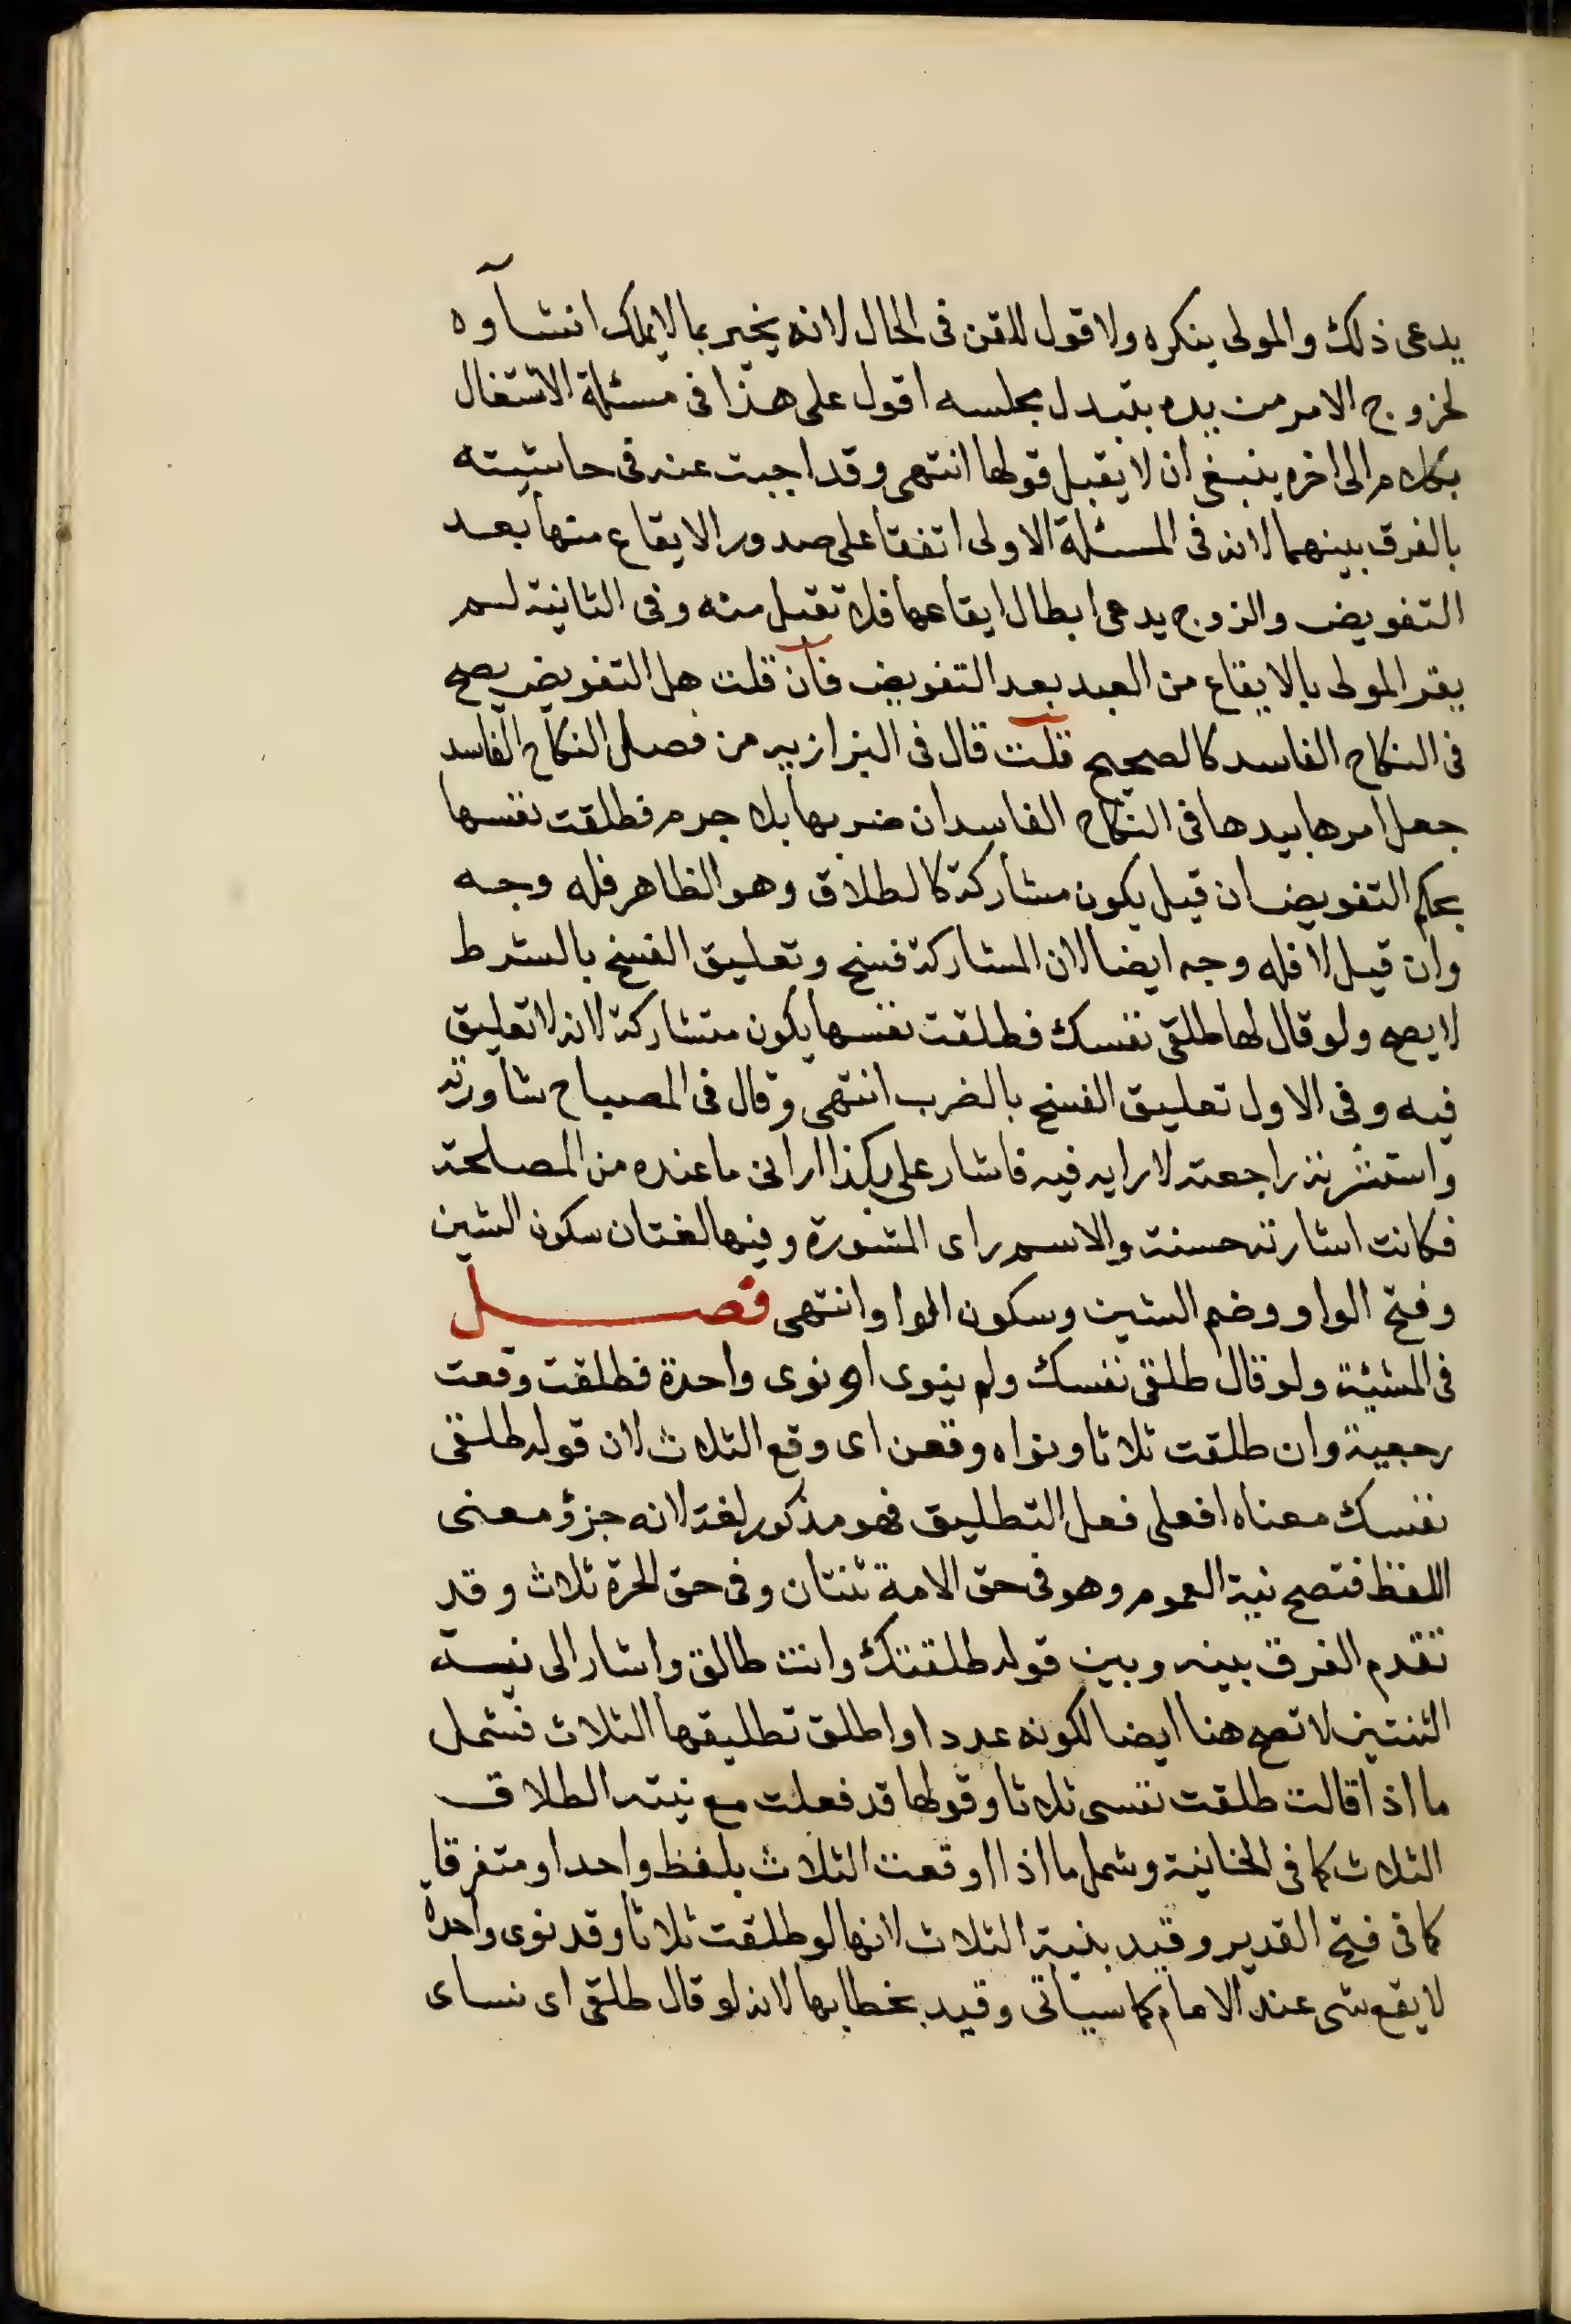 يدعى ذلك والمولى ينكره ولا قول للقن فى الحال لانه يخبر بما لا يملك انشآوه
لخروج الامر من يده بتبدل مجلسه اقول على هذا فى مسئلة الاشتغال
بكلام الى اخره ينبغى ان لا يقبل قولها انتهى وقد اجبت عنه فى حاشيته
بالفرق بينهما لانه فى المسئلة الاولى اتفقا على صدور الايقاع منها بعد
التفويض والزوج يدعى ابطال ايقاعها فلا تقبل منه وفى الثانية لم
يقر المولى بالايقاع من العبد بعد التفويض فان قلت هل التفويض يصح
فى النكاح الفاسد كالصحيح قلت قال فى البزازيه من فصل النكاح الفاسد
جعل امرها بيدها فى النكاح الفاسد ان ضربها بلا جرم فطلقت نفسها
بحكم التفويض ان قيل يكون مشاركة كالطلاق وهو الظاهر فله وجه
وان قيل لا فله وجه ايضا لان المشاركة فسخ وتعليق الفسخ بالشرط
لا يصح ولو قال لها طلقى نفسك فطلقت نفسها يكون متشاركة لانه لا تعليق
فيه وفى الاول تعليق الفسخ بالضرب انتهى وقال فى المصباح شاورته
واستشرته راجعته لارايه فيه فاشار على بكذا ارانى ما عنده من المصلحة
فكانت اشارته حسنة والاسم راى المشورة وفيها لغتان سكون الشين
وفتح الواو وضم الشين وسكون الواو انتهى فصل
فى المشيئة ولو قال طلقى نفسك ولم ينوى او نوى واحدة فطلقت وقعت
رجعية وان طلقت ثلاثا ونواه وقعن اى وقع الثلاث لان قوله طلقى
نفسك معناه افعلى فعل التطليق فهو مذكور لغة لانه جزؤ معنى
اللفظ فتصح نية العموم وهو فى حق الامة ثنتان وفى حق الحرة ثلاث وقد
تقدم الفرق بينه وبين قوله طلقتك وانت طالق واشار الى نية
الثنتين لا تصح هنا ايضا لكونه عددا واطلق تطليقها الثلاث فشمل
ما اذا قالت طلقت نفسى ثلاثا وقولها قد فعلت مع نيته الطلاق
الثلاث كما فى الخانية وشمل ما اذا اوقعت الثلاث بلفظ واحد او متفرقا
كما فى فتح القدير وقيد بنية الثلاث لانها لو طلقت ثلاثا وقد نوى واحدة
لا يقع شى عند الامام كما سيأتى وقيد بخطابها لانه لو قال طلقى اى نساى